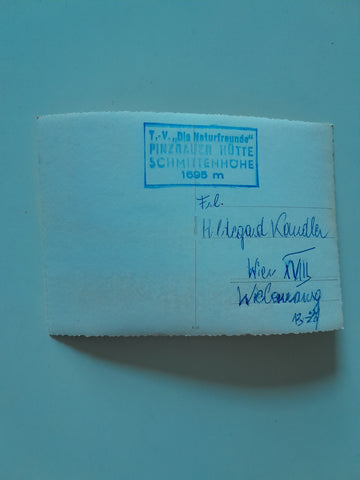 T.-V. „Die Naturfreunde"
PINZGAUER HÜTTE
SCHMITTENHÖHE
1695 m
Frl.
Hildegard Kandler
Wien XVIII